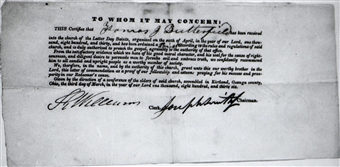 TO WHOM IT MAY CONCERN:
THIS Certifies that Thomas J Butterfield has been received
into the church of the Latter Day Saints, organized on the sixth of April, in the year of our Lord, one thou-
sand, eight hundred, and thirty, and has been ordained a according to the rules and regulations of said
church, and is duly authorized to preach the gospel, agreeably to the authority of that office.
From the satisfactory evidence which we have of his good moral character, and his zeal for the cause of right-
eousness, and diligent desire to persuade men to forsake evil and embrace truth, we confidently recommend
him to all candid and upright people as a worthy member of society.
We, therefore, in the name, and by the authority of this church, grant unto this our worthy brother in the
Lord, this letter of commendation as a proof of our fellowship and esteem: praying for his success and pros-
perity in our Redeemer's cause.
Given by the direction of a conference of the elders of said church, assembled in Kirtland, Geauga county,
Ohio, the third day of March, in the year of our Lord one thousand, eight hundred, and thirty six.
F G Williams Clerk. Joseph Smith Jr Chairman.